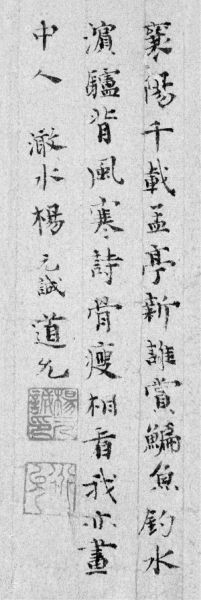 襄陽千載孟亭新誰賞鯿魚釣水
濱驢背風寒詩骨瘦相看我亦畫
中人　澉水楊元誠道允
楊元誠印